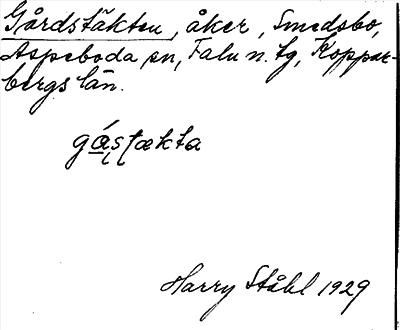 Gårdstäkten, åker, Smedsbo,
Aspeboda sn, Falu n. tg, Koppar-
bergs län.
gástækta
Harry Ståhl 1929